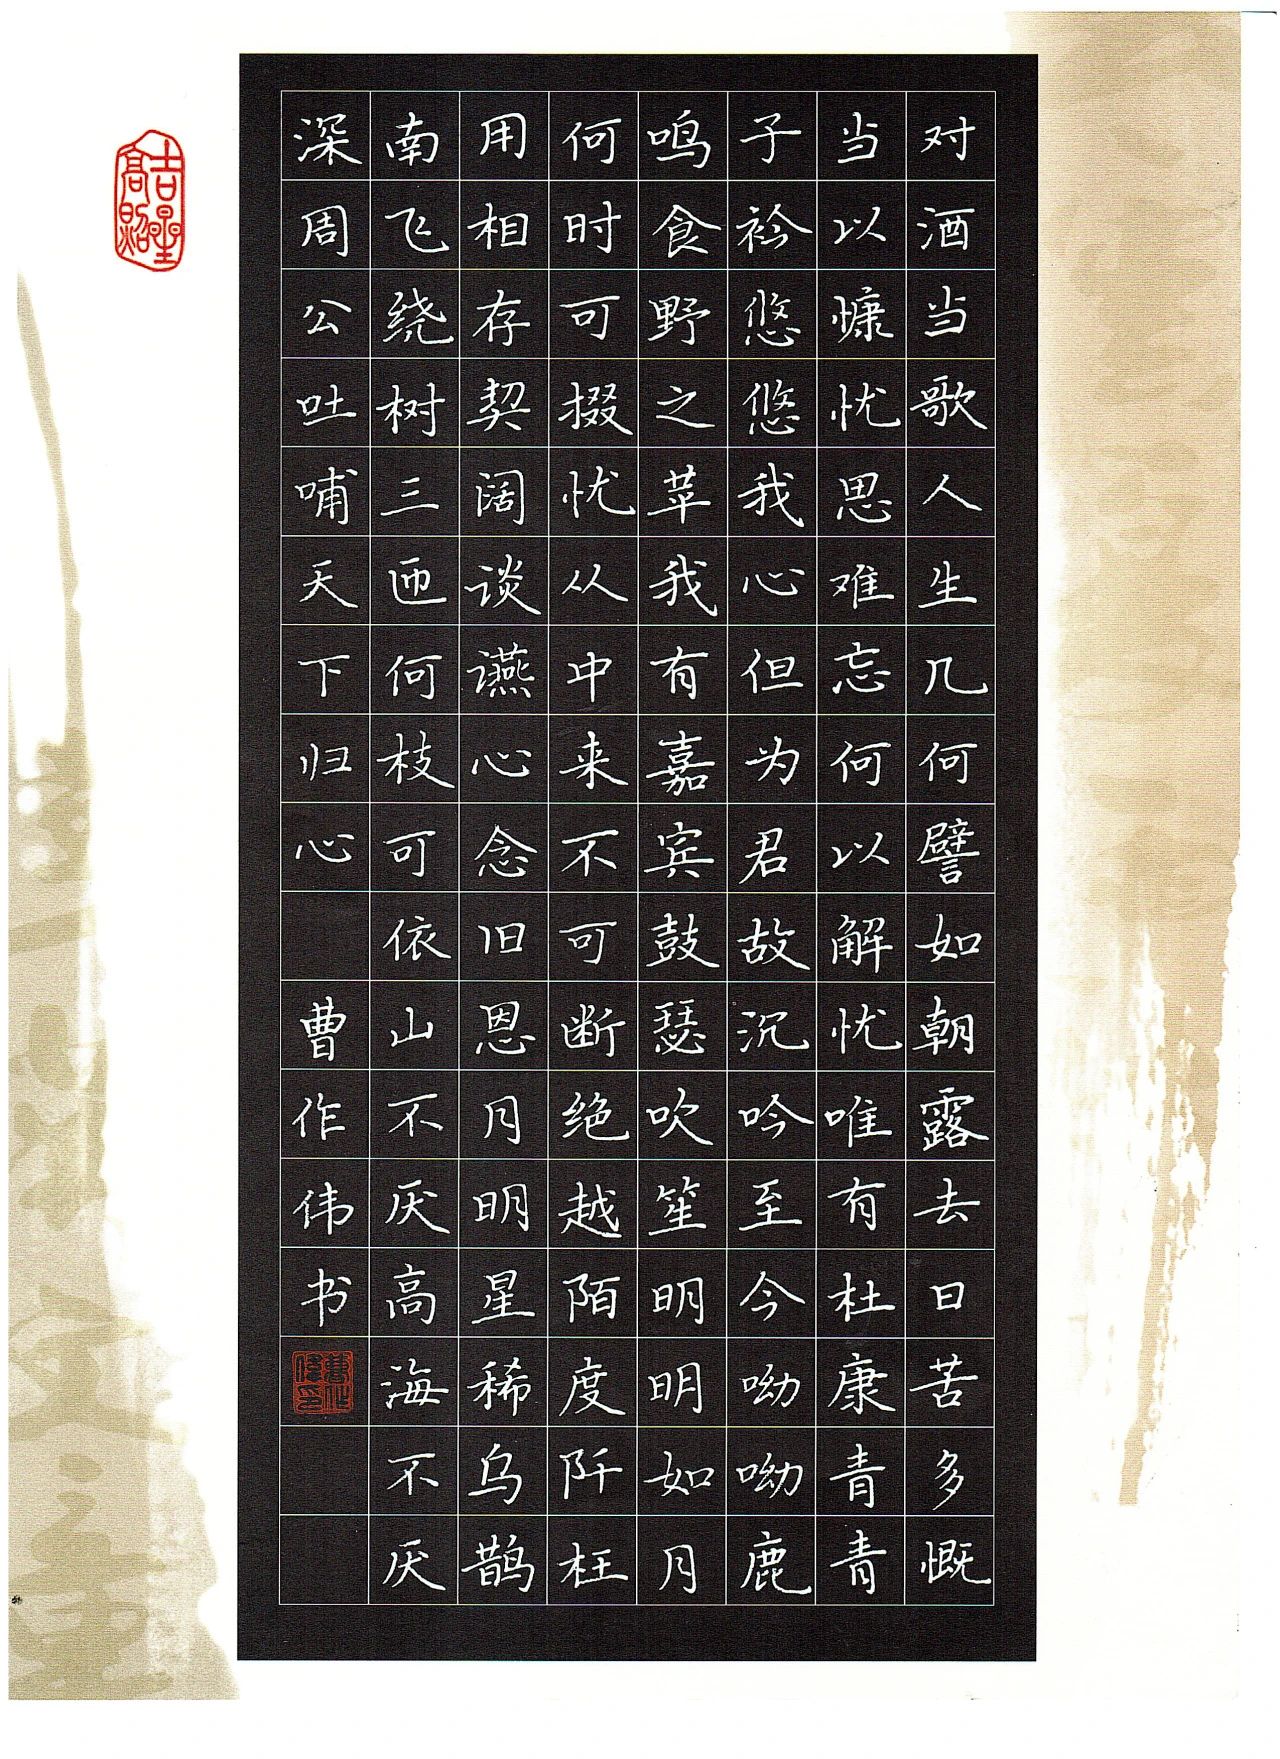 对酒当歌人生几何譬如朝露去日苦多慨
当以慷忧思难忘何以解忧唯有杜康青青
子衿悠悠我心但为君故沉吟至今呦呦鹿
鸣食野之苹我有嘉宾鼓瑟吹笙明明如月
何时可掇忧从中来不可断绝越陌度阡枉
用相存契阔谈䜩心念旧恩月明星稀乌鹊
南飞绕树三匝何枝可依山不厌高海不厌
深周公吐哺天下归心 曹作伟书
曹作伟印
吉星高照